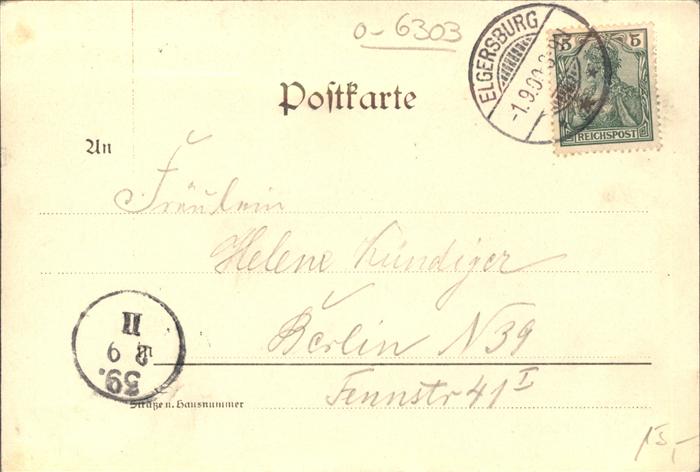 o-6303
ELGERSBURG
-1.9.00.
5 5
REICHSPOST
Postkarte
An
Fräulein
Helene Kündiger
Berlin N39
Fennstr 41 I
39.
2 9
II
Straße u. Hausnummer
15,-